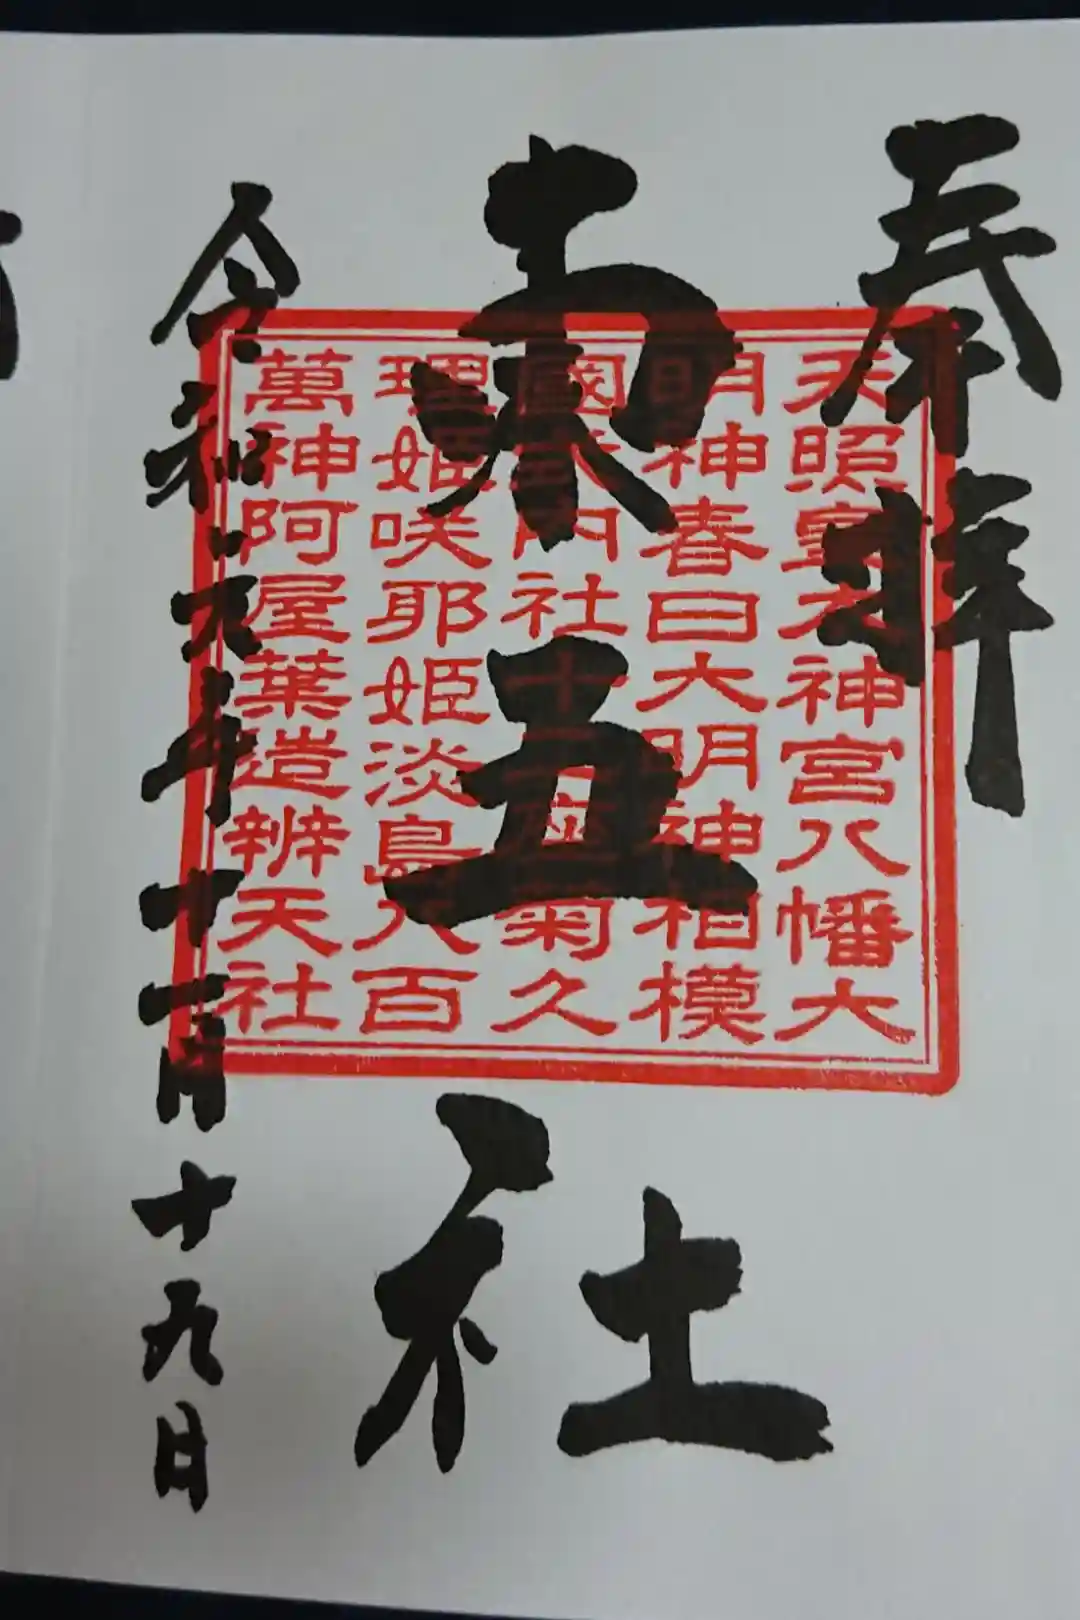 奉拝
五社
令和元年十一月十九日
天照皇大神宮八幡大
明神春日大明神相模
國式内社十三座菊久
理姫咲耶姫淡島八百
萬神阿屋葉造辨天社